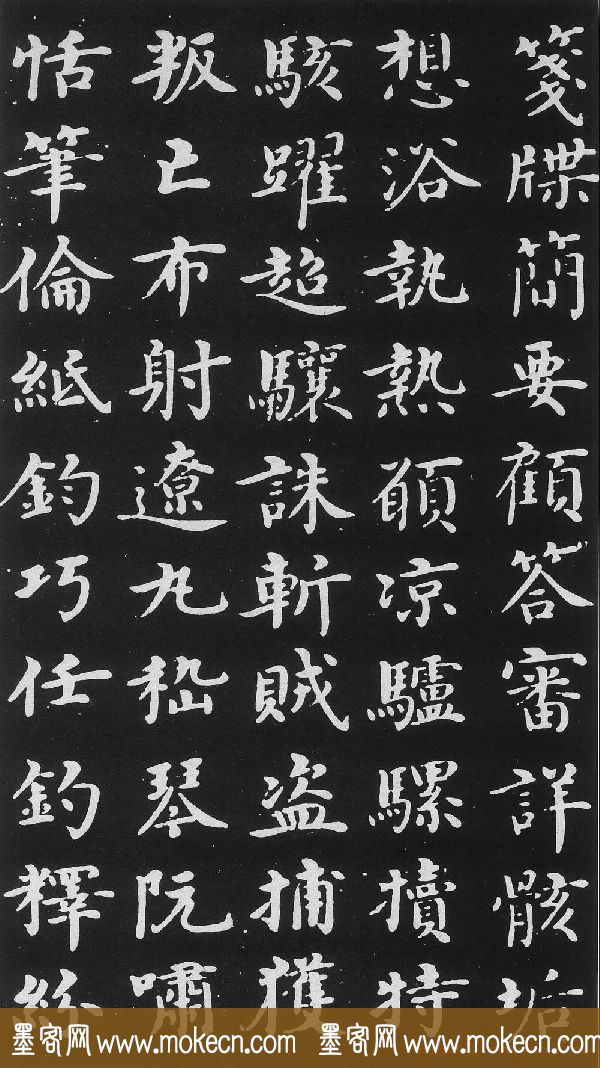 箋牒簡要顧答審詳骸垢
想浴執熱願凉驢騾犢特
駭躍超驤誅斬賊盗捕獲
叛亡布射遼丸嵇琴阮嘯
恬筆倫紙鈞巧任釣釋紛
墨客网 www.mokecn.com 墨客网 www.mokecn.com